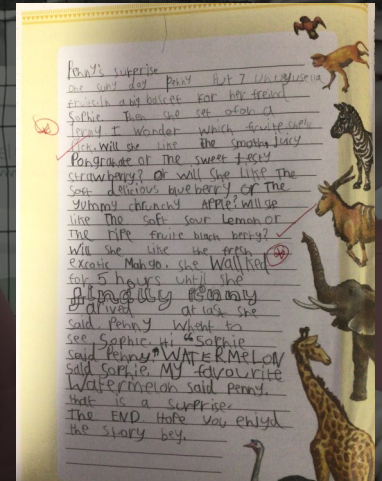 Penny's surprise
one suny day Penny Put 7
fruits in a big basket for her freind
Sophie. Then she set of on a
I wonder which fruite she'll
will she like the smooth juicy
or the sweet
strawberry? or will she like the
soft delicious blueberry or the
yummy chrunchy APPle? will she
like the soft sour lemon or
the ripe fruite black berry?
will she like the fresh
excotic Mango. she walked
for 5 hours until she
finally Penny
arived at last she
said. Penny whent to
see Sophie. Hi "Sophie
said Penny" WATERMELON
said Sophie. My favourite
watermelon said Penny.
that is a surprise.
The END Hope you enjyd
the story bey.